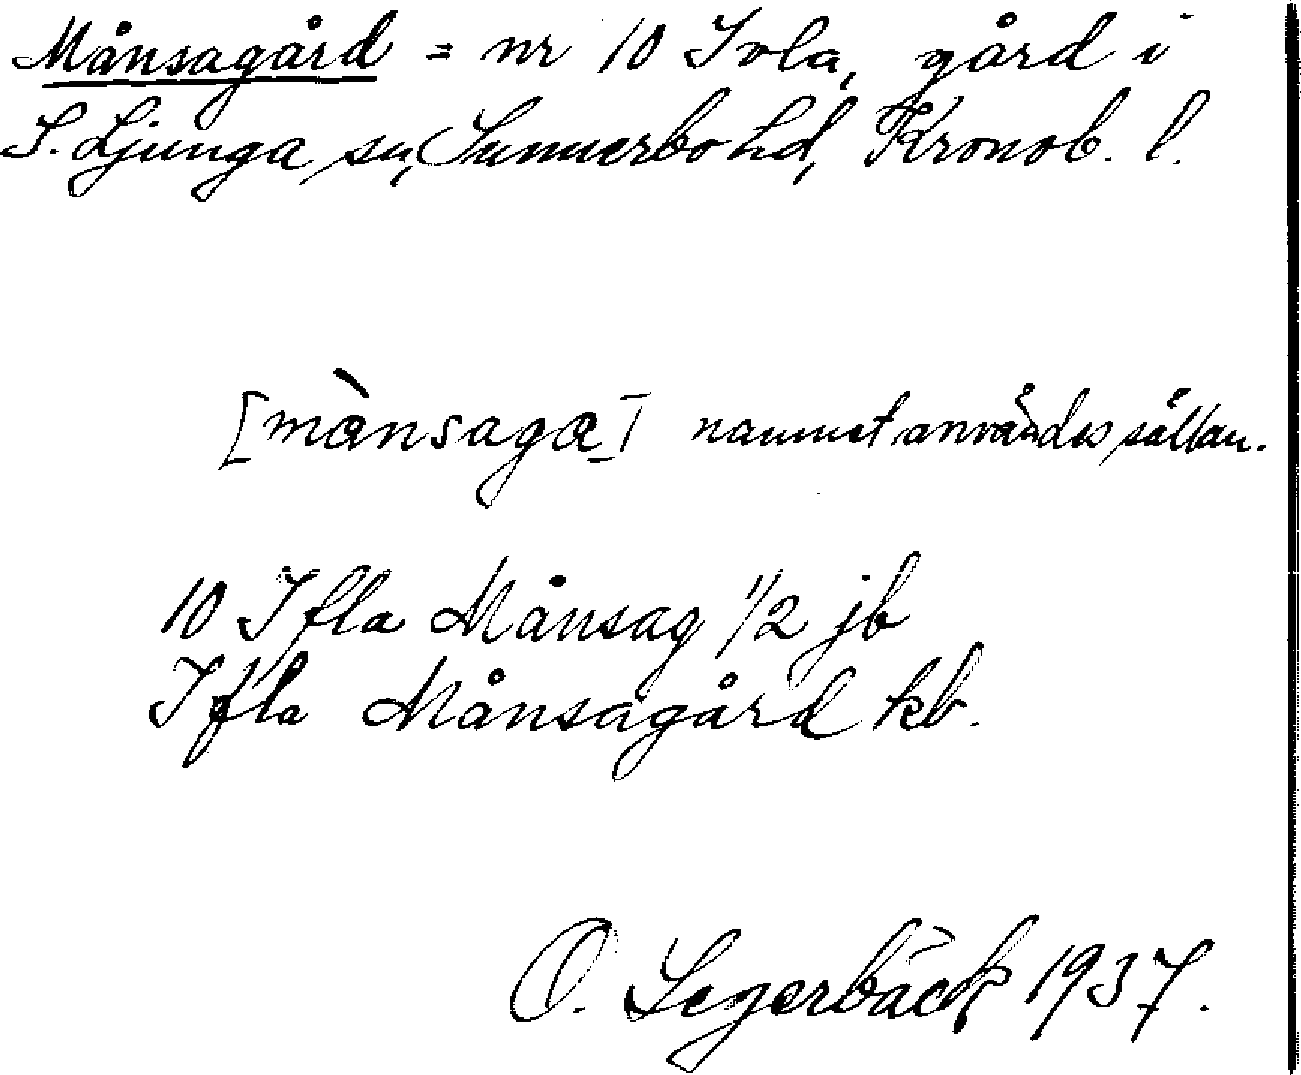 Månsagård = nr 10 Ivla, gård i
S. Ljunga sn, Sunnerbo hd, Kronob. l.
[mànsaga] namnet användes sällan.
10 Ifla Månsag 1/2 jb
Ifla Månsagård kb.
O. Segerbäck 1937.